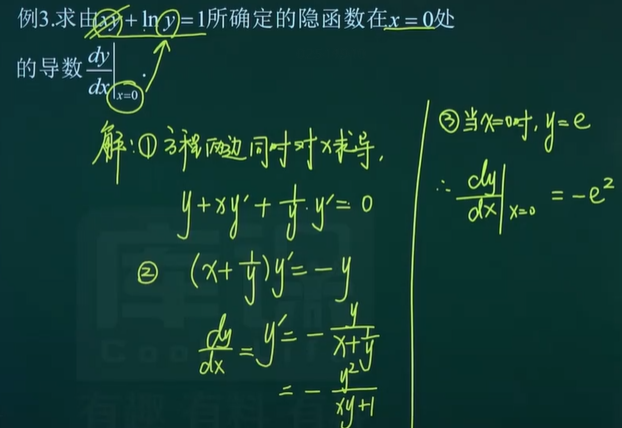 例3.求由xy+ln y=1所确定的隐函数在x=0处
的导数dy/dx|x=0.
解:①方程两边同时对x求导,
y+xy'+1/y·y'=0
② (x+1/y)y'=-y
dy/dx=y'=-y/(x+1/y)
=-y²/(xy+1)
③当x=0时,y=e
∴dy/dx|x=0=-e²